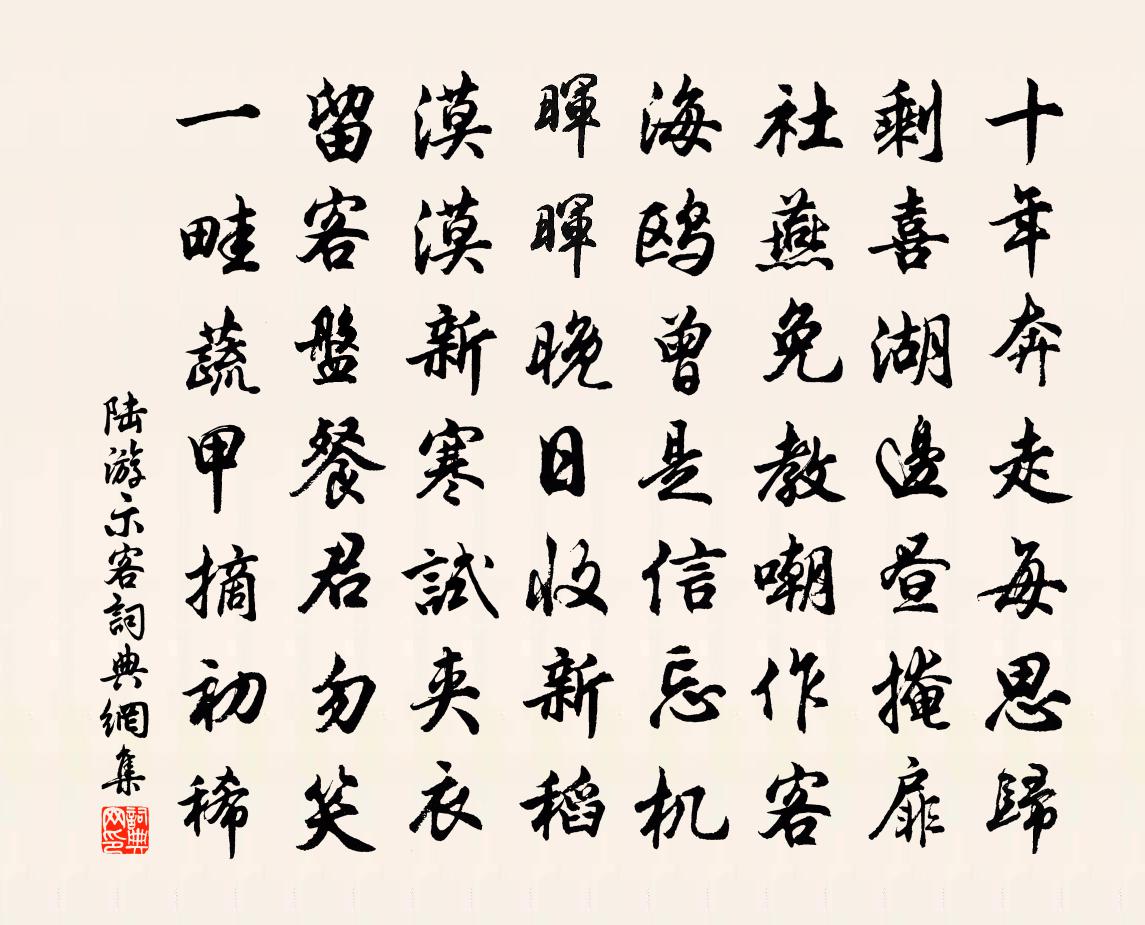 十年奔走每思歸
剩喜湖邊晝掩扉
社燕免教嘲作客
海鷗曾是信忘机
暉暉晚日收新稻
漠漠新寒試夾衣
留客盤餐君勿笑
一畦蔬甲摘初稀
陆游示客詞典網集
詞典網印